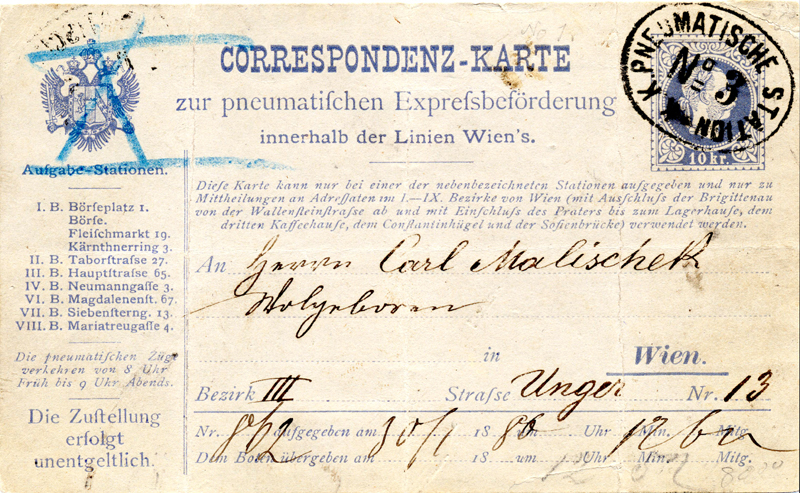 CORRESPONDENZ-KARTE
zur pneumatiſchen Expreſsbeförderung
innerhalb der Linien Wien's.
K.K. PNEUMATISCHE STATION
No 3
STATION
10 kr.
Aufgabe-Stationen.
I. B. Börſeplatz 1.
Börſe.
Fleiſchmarkt 19.
Kärnthnerring 3.
II. B. Taborſtraſse 27.
III. B. Hauptſtraſse 65.
IV. B. Neumanngaſſe 3.
VI. B. Magdalenenſt. 67.
VII. B. Siebenſterng. 13.
VIII. B. Mariatreugaſſe 4.
Die pneumatiſchen Züge
verkehren von 8 Uhr
Früh bis 9 Uhr Abends.
Die Zuſtellung
erfolgt
unentgeltlich.
Dieſe Karte kann nur bei einer der nebenbezeichneten Stationen aufgegeben und nur zu
Mittheilungen an Adreſſaten im I.—IX. Bezirke von Wien (mit Ausſchluſs der Brigittenau
von der Wallenſteinſtraſse ab und mit Einſchluſs des Praters bis zum Lagerhauſe, dem
dritten Kaffeehauſe, dem Conſtantinhügel und der Soſienbrücke) verwendet werden.
An Herrn Carl Malischek
Wolgeboren
in Wien.
Bezirk III Straſse Unger Nr. 13
Nr. 862 aufgegeben am 30/1 18 86 um Uhr 12 Min. Mitg.
Dem Boten übergeben am 18 um Uhr Min. Mitg.